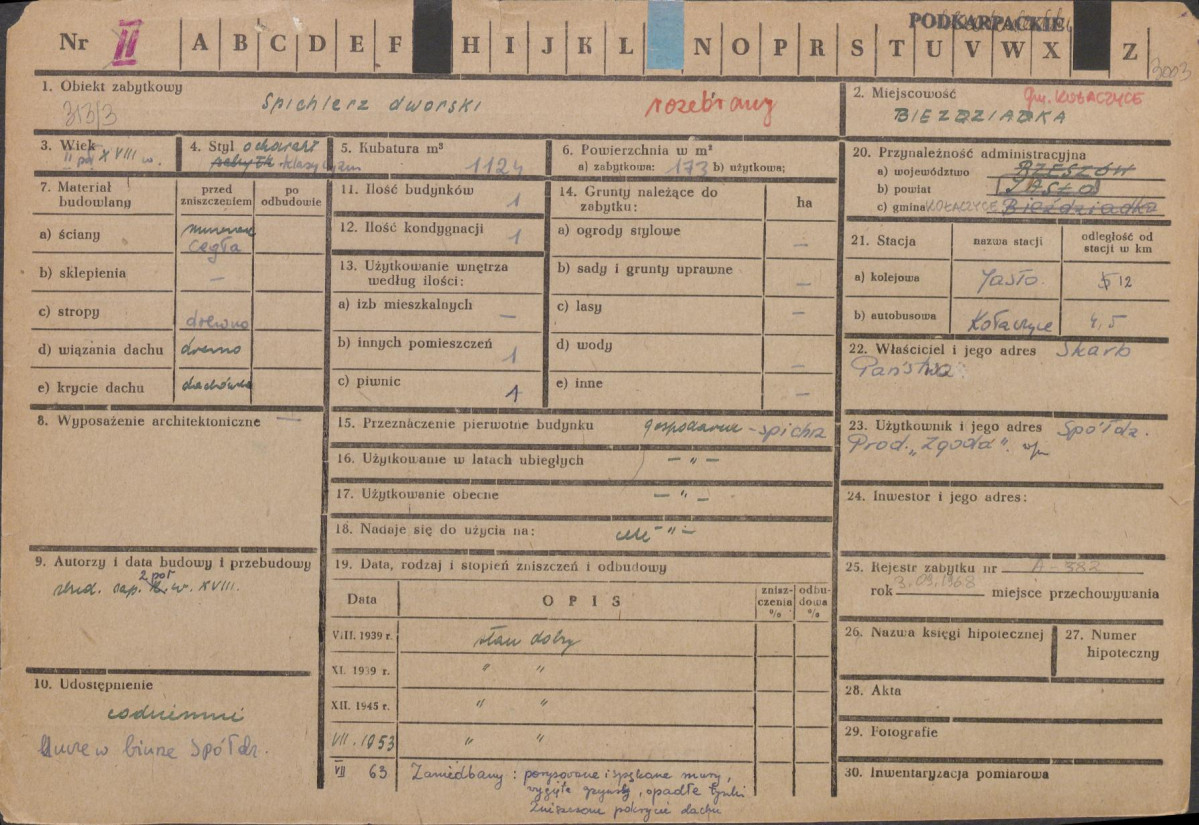 PODKARPACKIE
Nr II A B C D E F H I J K L N O P R S T U V W X Z
3003
1. Obiekt zabytkowy
Spichlerz dworski
rozebrany
313/3
2. Miejscowość
gm. KOŁACZYCE
BIEŹDZIADKA
3. Wiek
II poł. XVIII w.
4. Styl
klasycyzm
5. Kubatura m³
1124
6. Powierzchnia w m²
a) zabytkowa: 173 b) użytkowa:
7. Materiał budowlany
przed zniszczeniem
po odbudowie
a) ściany
murowane
cegła
b) sklepienia –
c) stropy drewno
d) wiązania dachu drewno
e) krycie dachu dachówka
8. Wyposażenie architektoniczne —
9. Autorzy i data budowy i przebudowy
2 poł
w. XVIII.
10. Udostępnienie
codziennie
Klucze w biurze Spółdz.
11. Ilość budynków 1
12. Ilość kondygnacji 1
13. Użytkowanie wnętrza
według ilości:
a) izb mieszkalnych –
b) innych pomieszczeń 1
c) piwnic 1
14. Grunty należące do
zabytku:
ha
a) ogrody stylowe –
b) sady i grunty uprawne –
c) lasy –
d) wody –
e) inne –
15. Przeznaczenie pierwotne budynku gospodarcze - spichrz
16. Użytkowanie w latach ubiegłych – " –
17. Użytkowanie obecne – " –
18. Nadaje się do użycia na: cele – " –
19. Data, rodzaj i stopień zniszczeń i odbudowy
Data
OPIS
zniszczenia %
odbudowa %
VIII. 1939 r. stan dobry
XI. 1939 r. " "
XII. 1945 r. " "
VII. 1953 " "
VII 63 Zaniedbany: porysowane i spękane mury,
wygięte gzymsy, opadłe tynki
zniszczone pokrycie dachu
20. Przynależność administracyjna
a) województwo RZESZÓW
b) powiat JASŁO
c) gmina KOŁACZYCE Bieździadka
21. Stacja
nazwa stacji
odległość od stacji w km
a) kolejowa Jasło. 12
b) autobusowa Kołaczyce 4,5
22. Właściciel i jego adres Skarb
Państwa
23. Użytkownik i jego adres Spółdz.
Prod. „Zgoda"
24. Inwestor i jego adres:
25. Rejestr zabytku nr A-382
rok 3.09.1968 miejsce przechowywania
26. Nazwa księgi hipotecznej
27. Numer hipoteczny
28. Akta
29. Fotografie
30. Inwentaryzacja pomiarowa